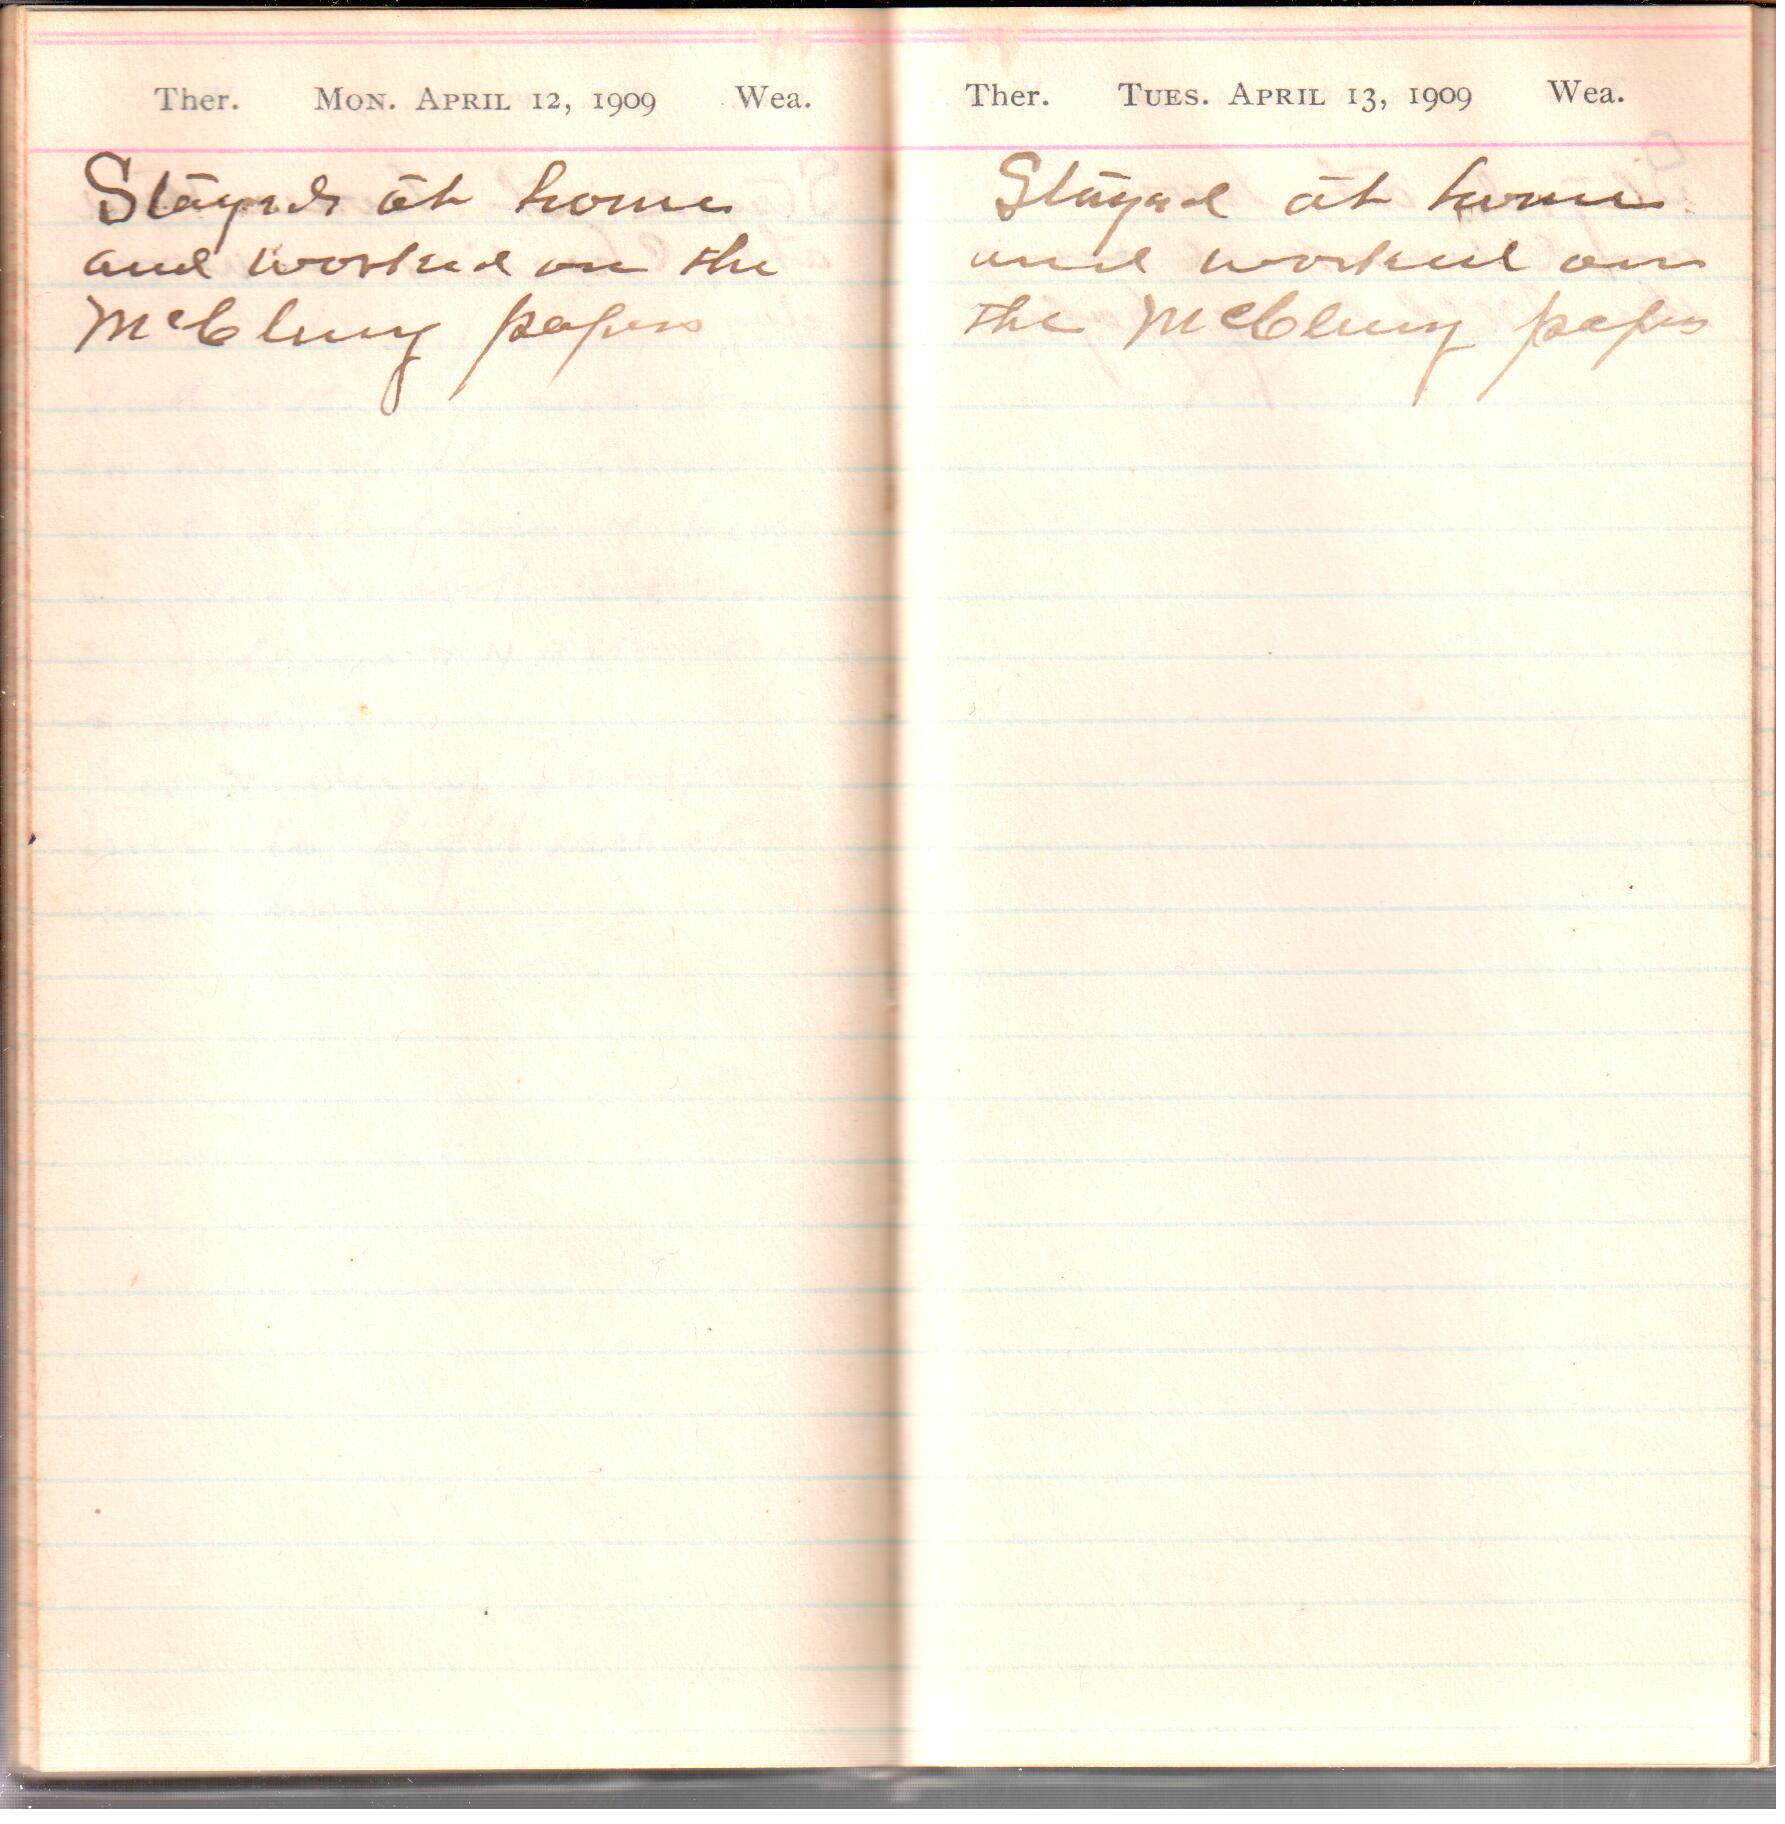 Ther. Mon. April 12, 1909 Wea.
Stayed at home
and worked on the
McClung papers
Ther. Tues. April 13, 1909 Wea.
Stayed at home
and worked on
the McClung papers